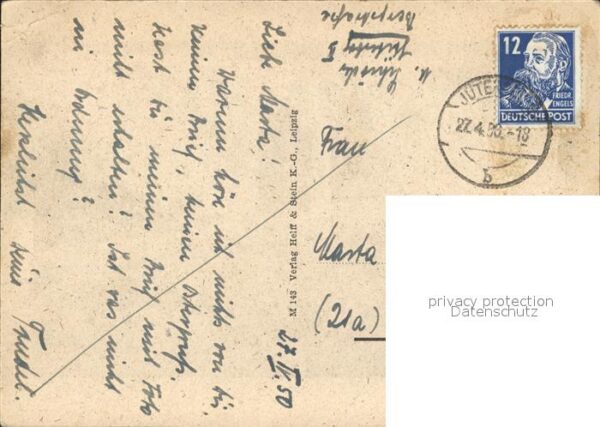 Liebe Marta!
Warum höre ich nichts von Dir,
keinen Brief, keinen Ostergruß.
Hast Du meinen Brief mit Foto
nicht erhalten? Ist was nicht
in Ordnung?
Herzlichst Deine
27.IV.50
M 143 Verlag Helff & Stein K.-G., Leipzig
Bergstraße
Frau
Marta
(21a)
12
FRIEDR.
ENGELS
DEUTSCHE POST
27.4.50.-18
b
privacy protection
Datenschutz